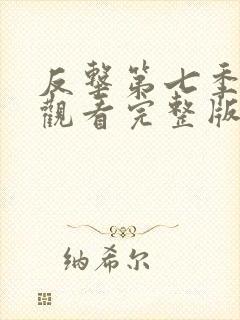 反擊第七季
觀看完整版
纳希尔